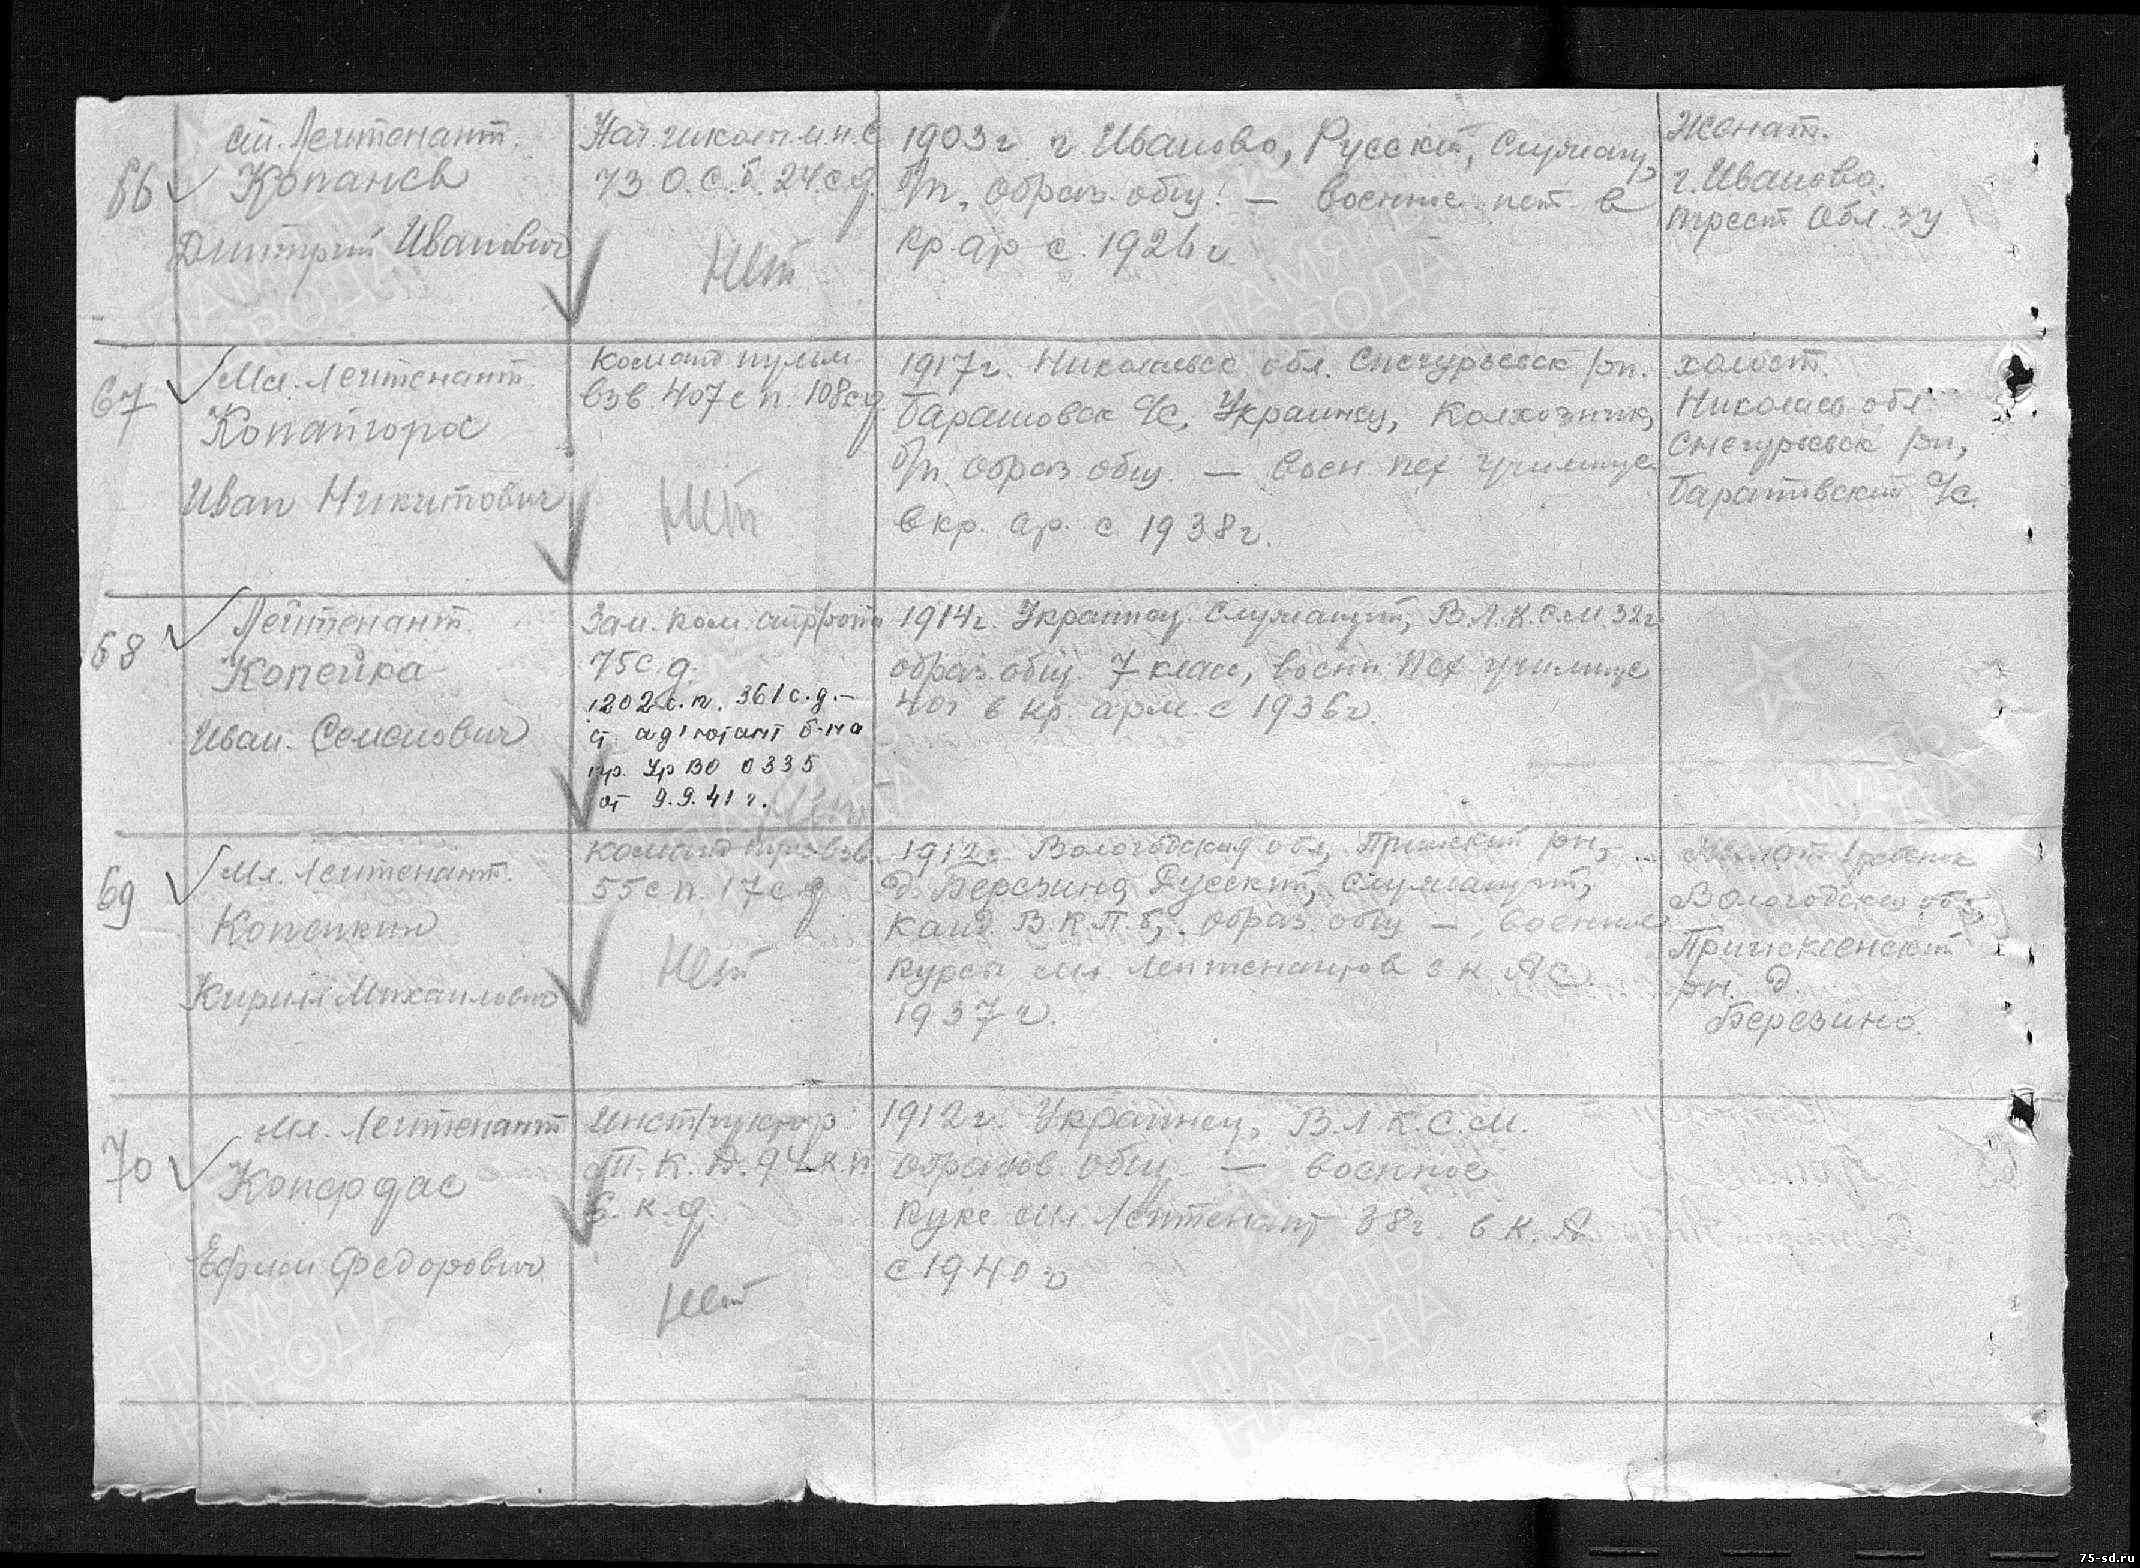 66
ст. Лейтенант.
Копанев
Дмитрий Иванович
73 О.С.б. 24 с д.
Нет
1903 г. г. Иваново, Русский, Служащ,
б/п, образ. общ. — военное нет в
кр. ар с. 1926 г.
Женат.
г. Иваново.
трест Обл. ЗУ
67
Мл. Лейтенант.
Копайгора
Иван Никитович
команд пулем.
взв. 407 с п. 108 с д.
Нет
1917 г. Николаевск обл. Снегурьевск р/н.
Барашовск с/с, Украинец, Колхозник,
б/п. образ общ. — воен пех училище
в кр. ар. с 1938 г.
холост.
Николаев обл
Снегуревск р/н,
с/с.
68
Лейтенант.
Копейка
Иван. Семенович
Зам. ком. стр/роты
75 с. д.
1202 с. п. 361 с. д. —
ст адъютант б-на
пр. Ур ВО 0335
от 9. 9. 41 г.
1914 г. Украинец. Служащий, В.Л.К.С.М. 32 г
образ. общ. 7 класс, воен Пех училище
40 г в кр. арм. с 1936 г.
69
Мл. Лейтенант.
Копенкин
Кирилл Михайлович
команд взв.
55 с п. 17 с. д
Нет
1912 г. Вологодская обл, р/н,
д. Березина, Русский, Служащий,
канд В.К.П.б, образ. общ —, военное
курсы мл. Лейтенантов с к А с
1937 г.
Вологодская обл,
рн. д.
Березино.
70
Мл. Лейтенант
Копердас
Ефим Федорович
Инструктор
П. К. А. 94 к. п
6. к. д.
Нет
1912 г. Украинец, В.Л.К.С.М.
образов. общ — военное
курс мл. Лейтенант 38 г. в К. А
с 1940 г
ПАМЯТЬ
НАРОДА
75-sd.ru